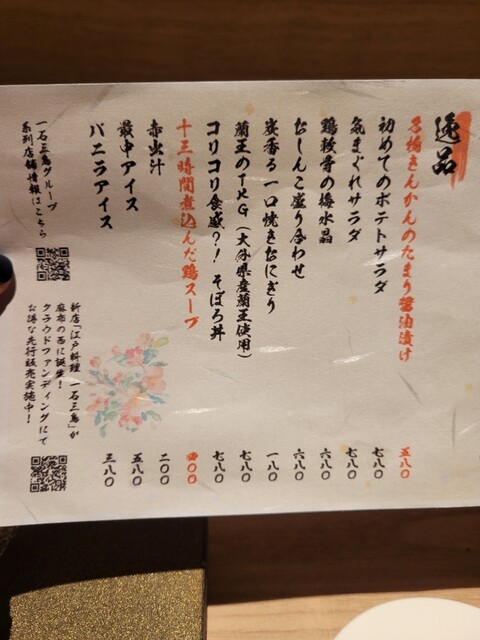 逸品
名物きんかんのたまり醤油漬け 五八〇
初めてのポテトサラダ 七八〇
気まぐれサラダ 七八〇
鶏軟骨の梅水晶 六八〇
おしんこ盛り合わせ 六八〇
炭香る一口焼きおにぎり 一八〇
蘭王のTKG（大分県産蘭王使用） 七八〇
コリコリ食感?！そぼろ丼 七八〇
十三時間煮込んだ鶏スープ 〇〇
赤出汁 二〇〇
最中アイス 五八〇
バニラアイス 三八〇
一石三鳥グループ
系列店舗情報はこちら
新店「江戸料理 一石三鳥」が
麻布の西に誕生！
クラウドファンディングにて
お得な先行販売実施中！